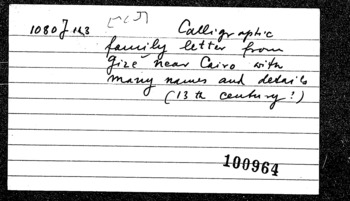 1080 J 143 Calligraphic
family letter from
Gize near Cairo with
many names and details
(13th century?)
100964